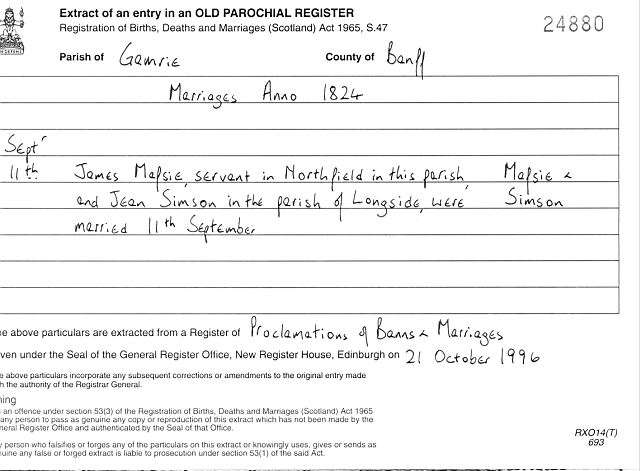 Extract of an entry in an OLD PAROCHIAL REGISTER
Registration of Births, Deaths and Marriages (Scotland) Act 1965, S.47
24880
Parish of Gamrie County of Banff
Marriages Anno 1824
Septr
11th James Mafsie, servant in Northfield in this parish, Mafsie &
and Jean Simson in the parish of Longside, were Simson
married 11th September
above particulars are extracted from a Register of Proclamations of Banns & Marriages
under the Seal of the General Register Office, New Register House, Edinburgh on 21 October 1996
above particulars incorporate any subsequent corrections or amendments to the original entry made
the authority of the Registrar General.
an offence under section 53(3) of the Registration of Births, Deaths and Marriages (Scotland) Act 1965
any person to pass as genuine any copy or reproduction of this extract which has not been made by the
General Register Office and authenticated by the Seal of that Office.
person who falsifies or forges any of the particulars on this extract or knowingly uses, gives or sends as
genuine any false or forged extract is liable to prosecution under section 53(1) of the said Act.
RXO14(T)
693